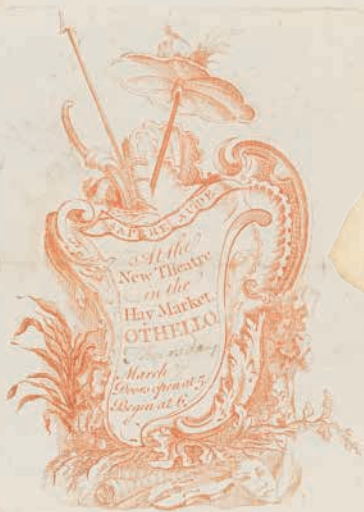 SAPERE AUDE
At the
New Theatre
in the
Hay Market.
OTHELLO.
March
Doors open at 5.
Begin at 6.